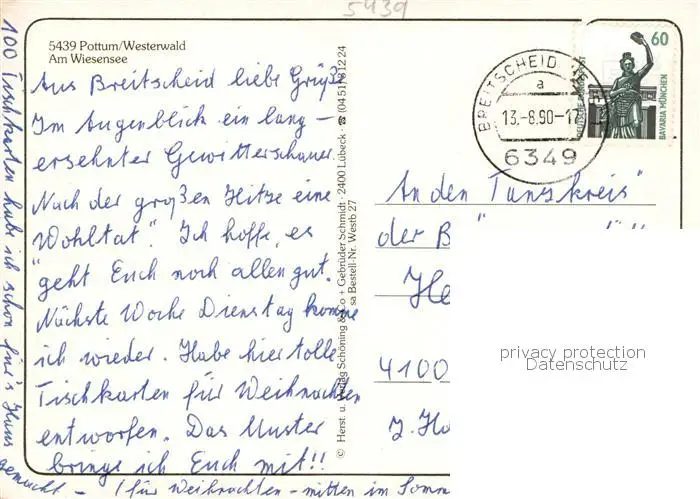 5439
5439 Pottum/Westerwald
Am Wiesensee
Aus Breitscheid liebe Grüße
Im Augenblick ein lang –
ersehnter Gewitterschauer.
Nach der großen Hitze eine
"Wohltat". Ich hoffe, es
geht Euch noch allen gut.
Nächste Woche Dienstag komme
ich wieder. Habe hier tolle
Tischkarten für Weihnachten
entworfen. Das Muster
bringe ich Euch mit!!
100 Tischkarten habe ich schon für's Haus
gemacht – (für Weihnachten – mitten im Somm
© Herst. u. Verlag Schöning & Co + Gebrüder Schmidt · 2400 Lübeck · ☎ (04 51)
sa Bestell-Nr. Westb 27
BREITSCHEID
a
13.-8.90-17
6349
60
DEUTSCHE BUNDESPOST
BAVARIA MÜNCHEN
An den "Tanzkreis"
der B
He
4100
z. Ha
privacy protection
Datenschutz